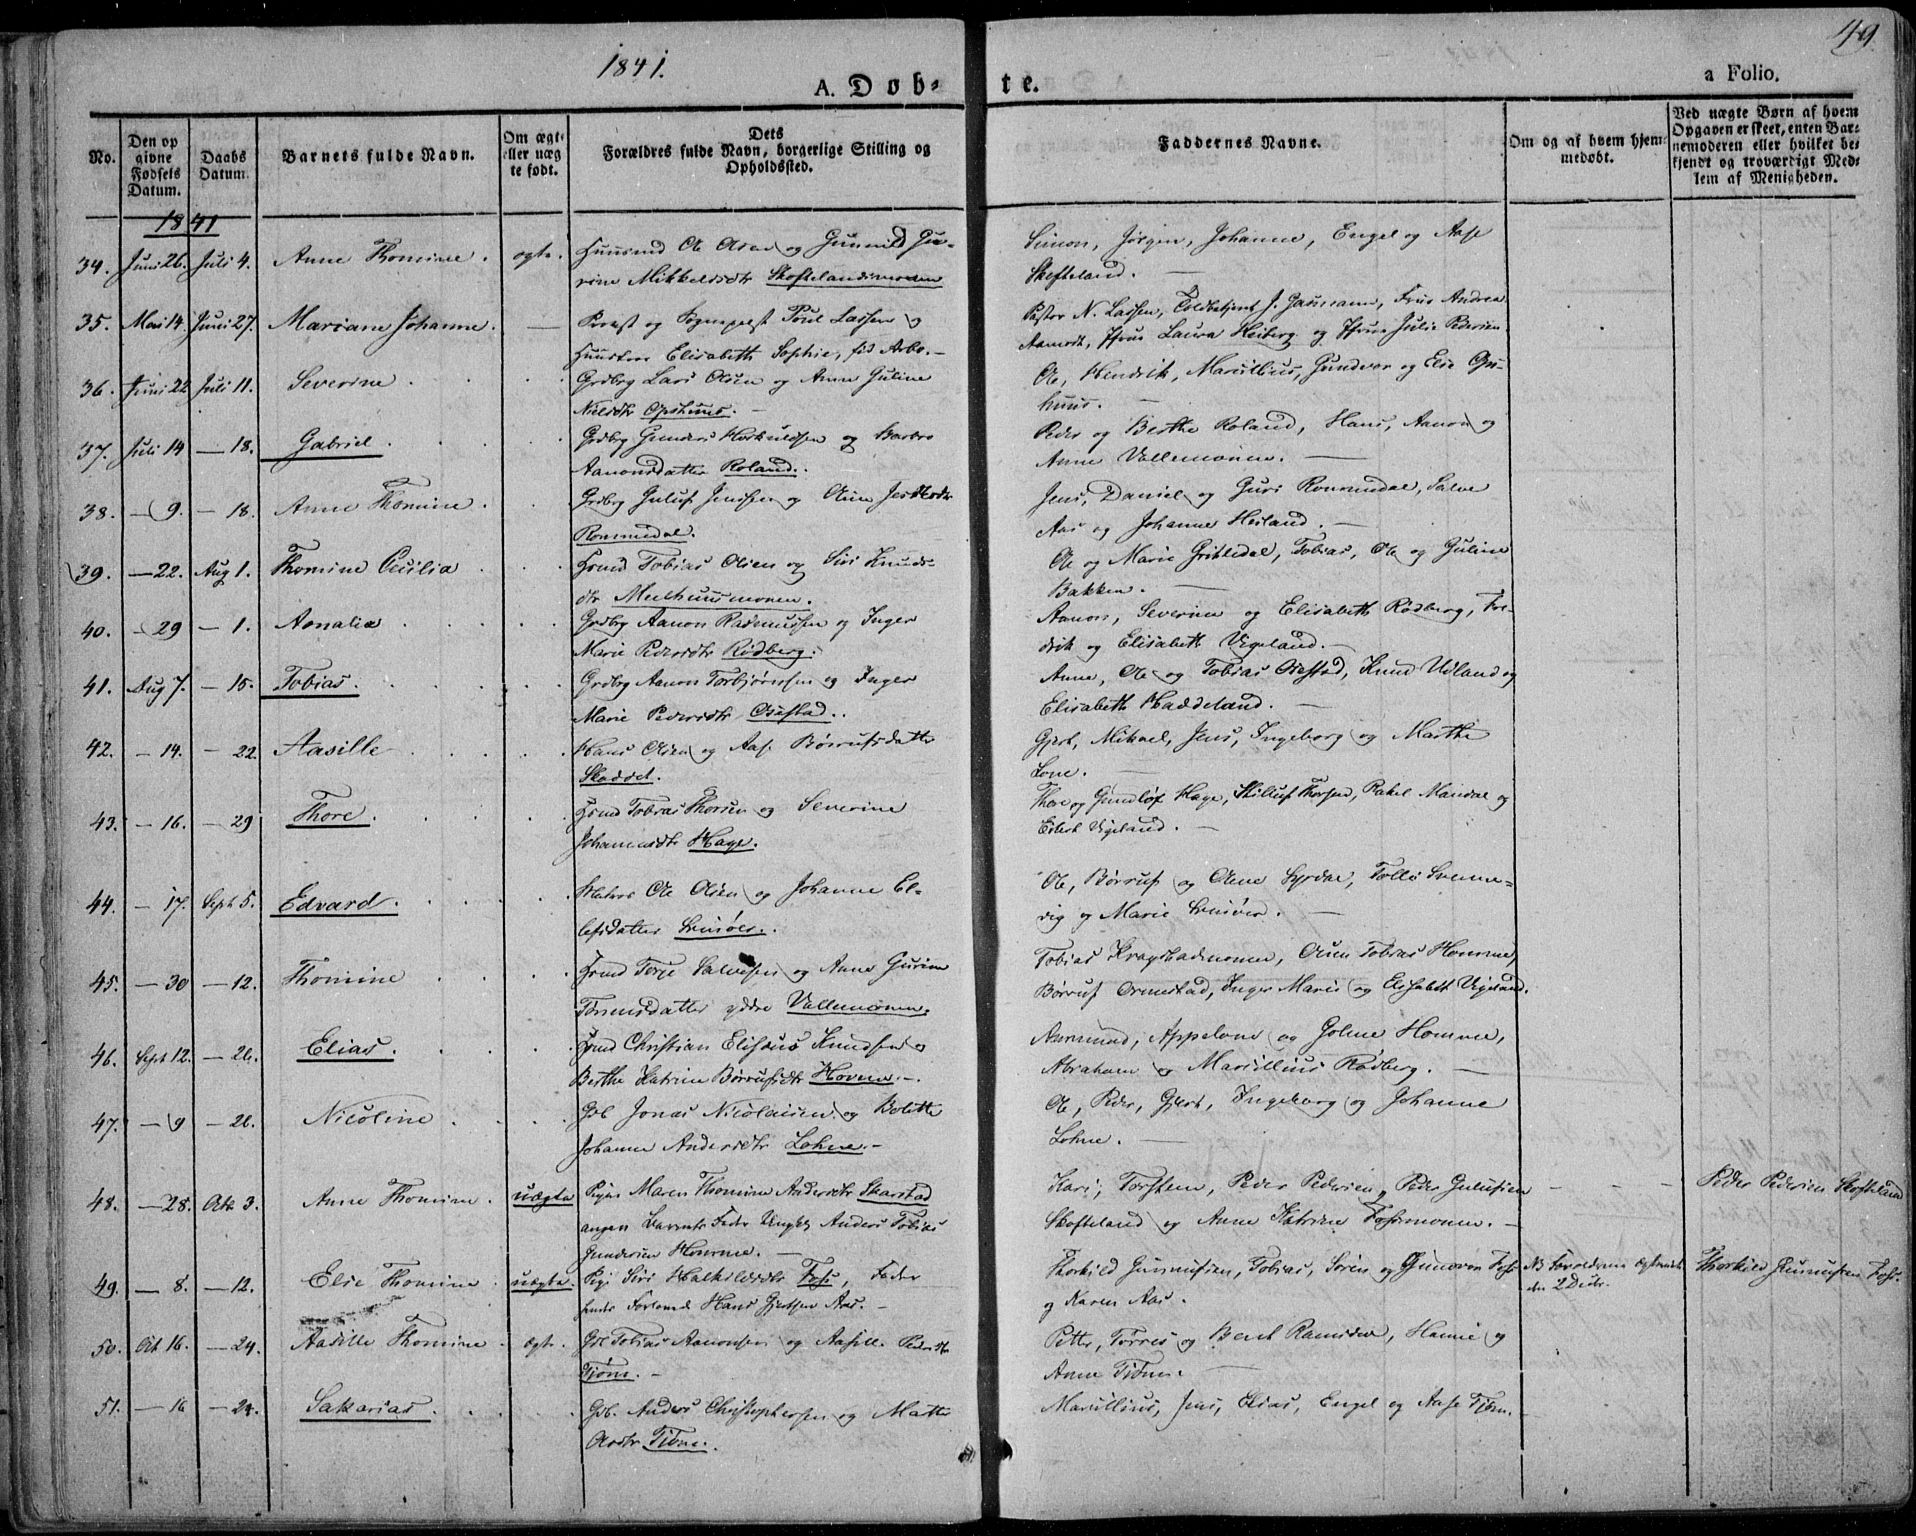 1841.
49
A. Döb=
te.
a Folio.
No.
Den op
givne
Fødsels
Datum.
Daabs
Datum.
Barnets fulde Navn.
Om ægte
eller uæg
te født.
Dets
Forældres fulde Navn, borgerlige Stilling og
Opholdssted.
Faddernes Navne.
Om og af hvem hjem=
medøbt.
Ved uægte Børn af hvem
Opgaven er skeet, enten Bar=
nemoderen eller hvilket be=
kjendt og troværdigt Med=
lem af Menigheden.
1841
34. Juni 26. Juli 4. Anne Thomine. ægte. Huusmd Ole Olsen og Gunnild Gu=
rine Mikkelsdtr Skoftelandsmonen
Simon, Jørgen, Johanne, Engel og Aase
Skofteland. —
35. Mai 14. Juni 27. Mariane Johanne. — Provst og Sognepræst Poul Lassen og
Huustroe Elisabeth Sophie, fød Arbo. —
Pastor N. Lassen, Toldbetjent J. Gasmann, Frue Andrea
Aamodt, Jfrue Laura Heiberg og Jfrue Julie Pedersen
36. Juni 22 Juli 11. Severine. Grdbrg Lars Olsen og Anne Guline
Nielsdtr Opshuus. —
Ole, Hendrik, Marcillius, Gundvor og Else Op=
huus. —
37. Juli 14 — 18. Gabriel. Grdbrg Gunder Hoskuldsen og Barbro
Aanonsdatter Roland.
Peder og Berthe Roland, Hans, Aanon og
Anne Vallemonen. —
38. — 9. — 18. Anne Thomine. Grdbrg Guluf Jensen og Oline
Rommedal.
Jens, Daniel og Guri Rommedal, Salve
Aas og Johanne Heiland. —
39. — 22. Aug 1. Thomine Cecilia Hsmd Tobias Olsen og Siri Knuds=
dtr Meelhuusmonen.
Ole og Marie Gritledal, Tobias, Ole og Guline
Bakken. —
40. — 29 — 1. Aonalia Grdbrg Aanon Rasmussen og Inger
Marie Pedersdtr Rødberg.
Aanon, Severine og Elisabeth Rødberg, Fre=
drik og Elisabeth Vigeland. —
41. Aug 7. — 15. Tobias. Grdbrg Aanon Torbjørnsen og Inger
Marie Pedersdtr Osestad.
Anne, Ole og Tobias Osestad, Knud Udland og
Elisabeth Haddeland. —
42. — 14. — 22. Aasille Hans Olsen og Aase Børrufsdatter
Skoddet.
Gjert, Mikael, Jens, Ingeborg og Marthe
Lone. —
43. — 16. — 29 Thore. Hsmd Tobias Thorsen og Severine
Johannesdtr Hage.
Thore og Gundlof Hage, Skilluf Thorsen, Rakel Mandal og
Eilert Vigeland. —
44. — 17. Sept 5. Edvard. Matros Ole Olsen og Johanne El=
lefsdatter Svinøer.
Ole, Børruf og Olene Syrdal, Tolle Svenne=
vig og Marie Svinøer. —
45. — 30 — 12. Thomine Hsmd Terje Salvesen og Anne Gurine
Tønnesdatter ydre Vallemonen.
Tobias Kragstadmonen, Osmund Tobias Homme,
Børruf Ormestad, Inger Marie og Elisabet Vigeland.
46. Sept 12. — 26. Elias. Hsmd Christian Elisæus Knudsen og
Berthe Katrine Børrufsdtr Hoven. —
Aanund, Appelone og Goline Homme,
Abraham og Marcillius Rødberg. —
47. — 9 — 26. Nicoline Gbl Jonas Nicolaisen og Bolette
Johanne Andersdtr Lohne. —
Ole, Peder, Gjert, Ingeborg og Johanne
Lohne. —
48. — 28. Octr 3. Anne Thomine. uægte Pigen Maren Thomine Andersdtr Skarstad
angiven Barnets Fader Ungkl Anders Tobias
Gundersen Homme. —
Kari, Torstein, Peder Pedersen, Peder Gulufsen
Skofteland og Anne Katrine Fossmonen. —
— — —
Peder Pedersen Skofteland
49. — 8. — 12. Else Thomine uægte. Pige Siri Halkilsdtr Foss, Fader
hendes Forlovede Hans Gjertsen Aas. —
Thorkild Gunnufsen, Tobias, Søren og Gunvor Foss
og Karen Aas.
NB Forældrene ægteviede
den 2 Decbr.
Thorkild Gunnufsen Foss.
50. Oct 16. — 24. Aasille Thomine ægte. Gbl Tobias Aanonsen og Aasille Pedersdtr
Tjøm. —
Petter, Tørres og Berit Ramsdal, Hanne og
Anne Tjøm. —
51. — 16 — 24. Sakarias. Gbl. Anders Christophersen og Mathe
Olsdtr Tjøm.
Marcillius, Jens, Elias, Engel og Aase Tjøm.